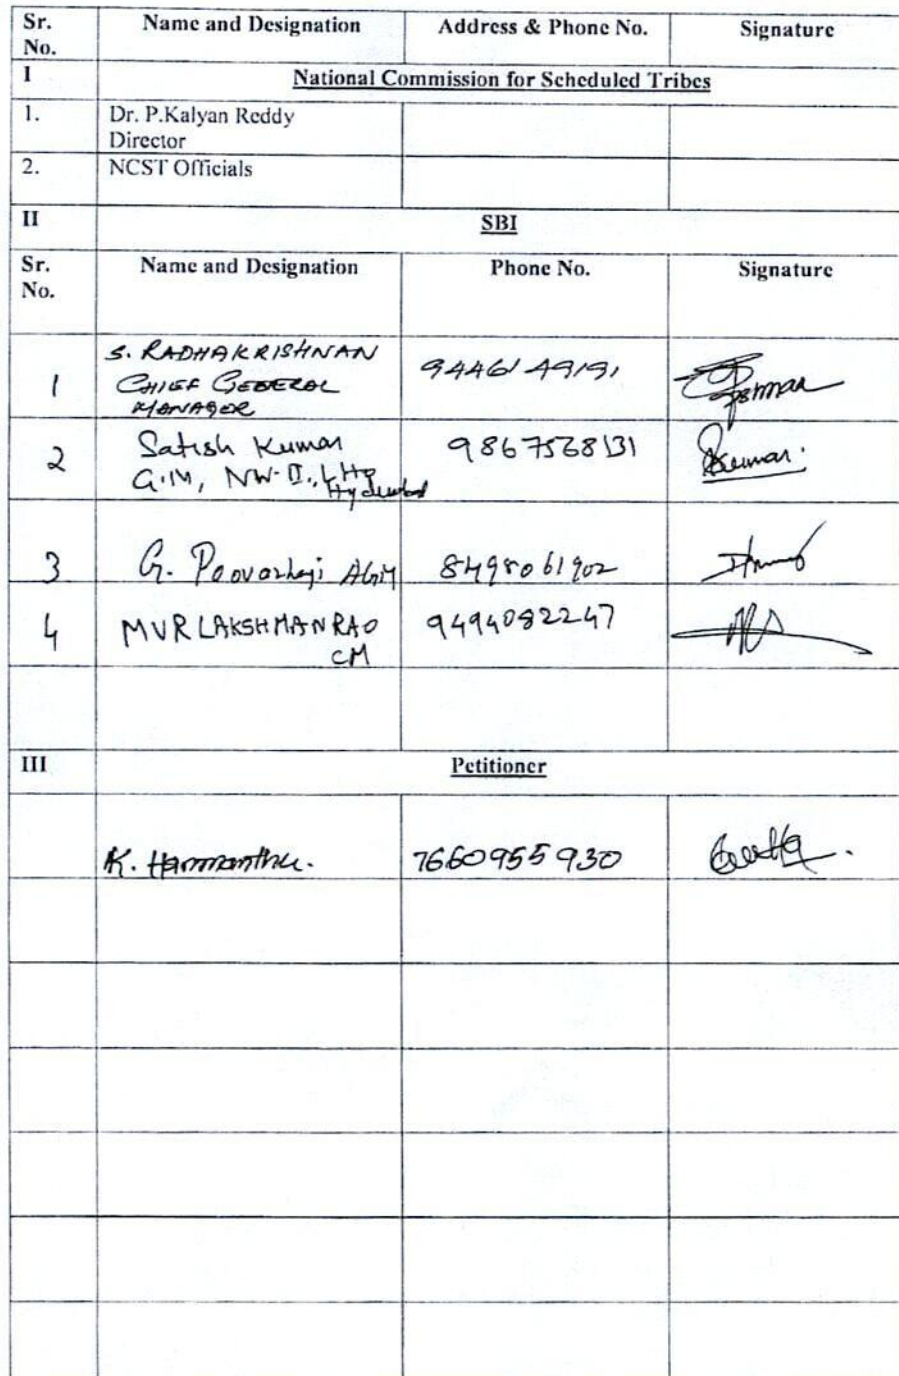 Sr. No. Name and Designation Address & Phone No. Signature
I National Commission for Scheduled Tribes
1. Dr. P.Kalyan Reddy
Director
2. NCST Officials
II SBI
Sr. No. Name and Designation Phone No. Signature
1 S. RADHAKRISHNAN 9446149191
CHIEF GENERAL
MANAGER
2 Satish Kumar 9867568131 Kumar.
G.M, NW-II, LHO
Hyderabad
3 G. Poovazhagi AGM 8498061902
4 MVR LAKSHMAN RAO 9494082247
CM
III Petitioner
K. Hanmanthu. 7660955930